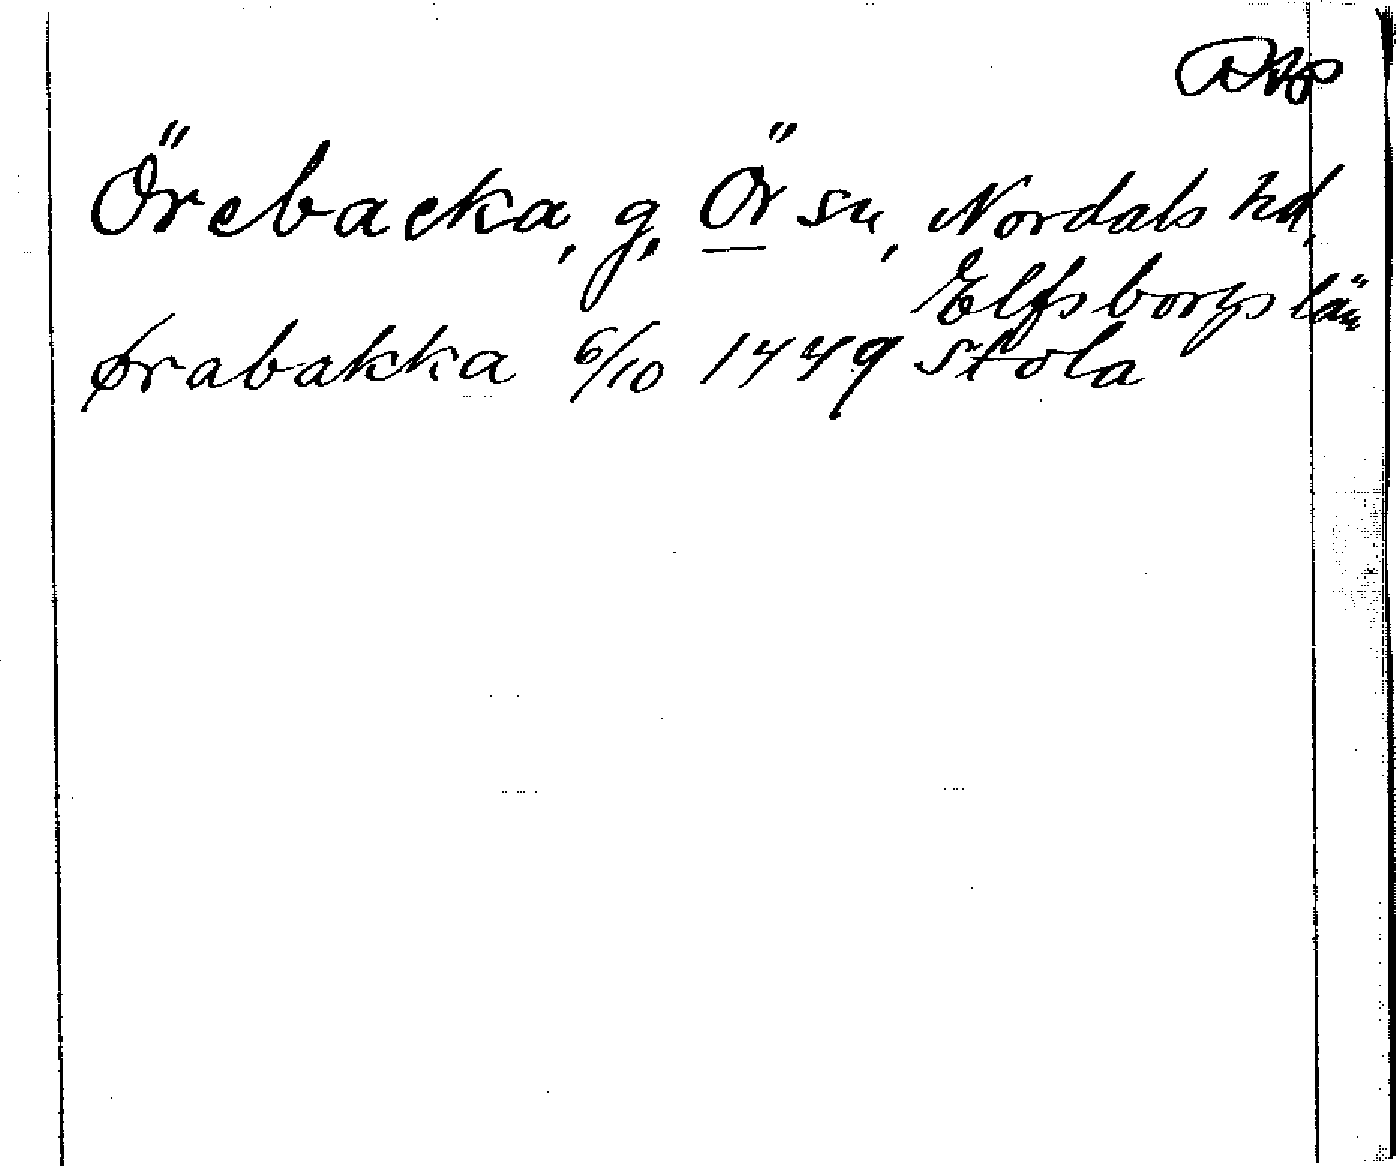 Örebacka, g, Ör sn, Nordals hd,
Elfsborgs län
ørabakka 6/10 1449 Stola